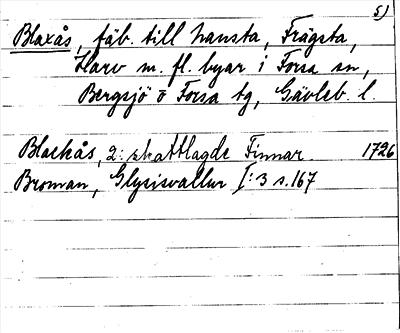 5)
Blaxås, fäb. till Hansta, Frägsta,
Harv m. fl. byar i Forsa sn,
Bergsjö o Forsa tg, Gävleb. l.
Blackås, 2: skattlagde Finnar. 1726
Broman, Glysisvallur I: 3 s. 167